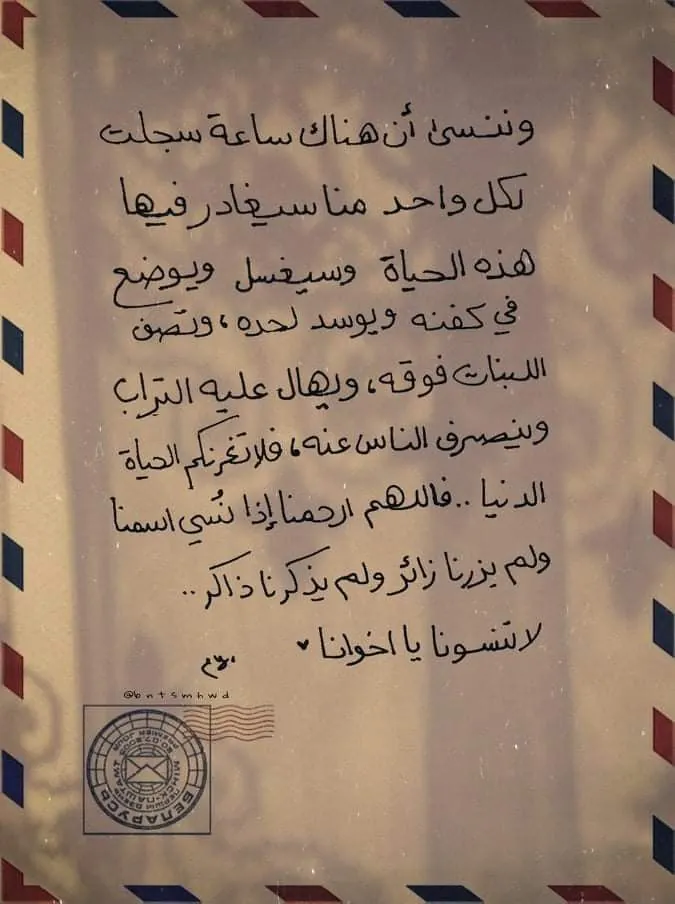 وننسى أن هناك ساعة سجلت
لكل واحد منا سيغادر فيها
هذه الحياة وسيغسل ويوضع
في كفنه ويوسد لحده، وتصف
اللبنات فوقه، ويهال عليه التراب
وينصرف الناس عنه، فلا تغرنكم الحياة
الدنيا .. فاللهم ارحمنا إذا نُسي اسمنا
ولم يزرنا زائر ولم يذكرنا ذاكر ..
لا تنسونا يا اخوانا ♥
@bntsmhwd
МІНСК-ПАШТАМТ
БЕЛАРУСЬ